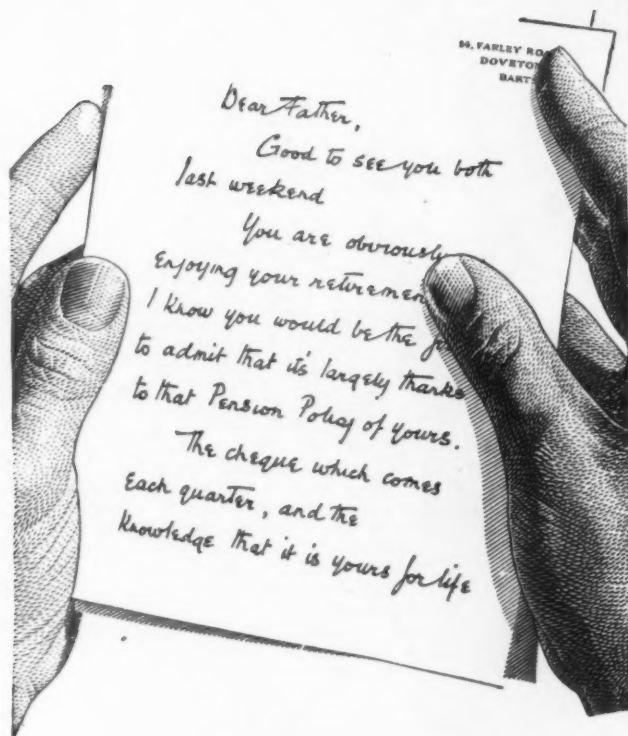 FARLEY
DOVETON
Dear Father,
Good to see you both
last weekend
You are obviously
enjoying your retirement
I know you would be the
to admit that it's largely thanks
to that Pension Policy of yours.
The cheque which comes
each quarter, and the
knowledge that it is yours for life